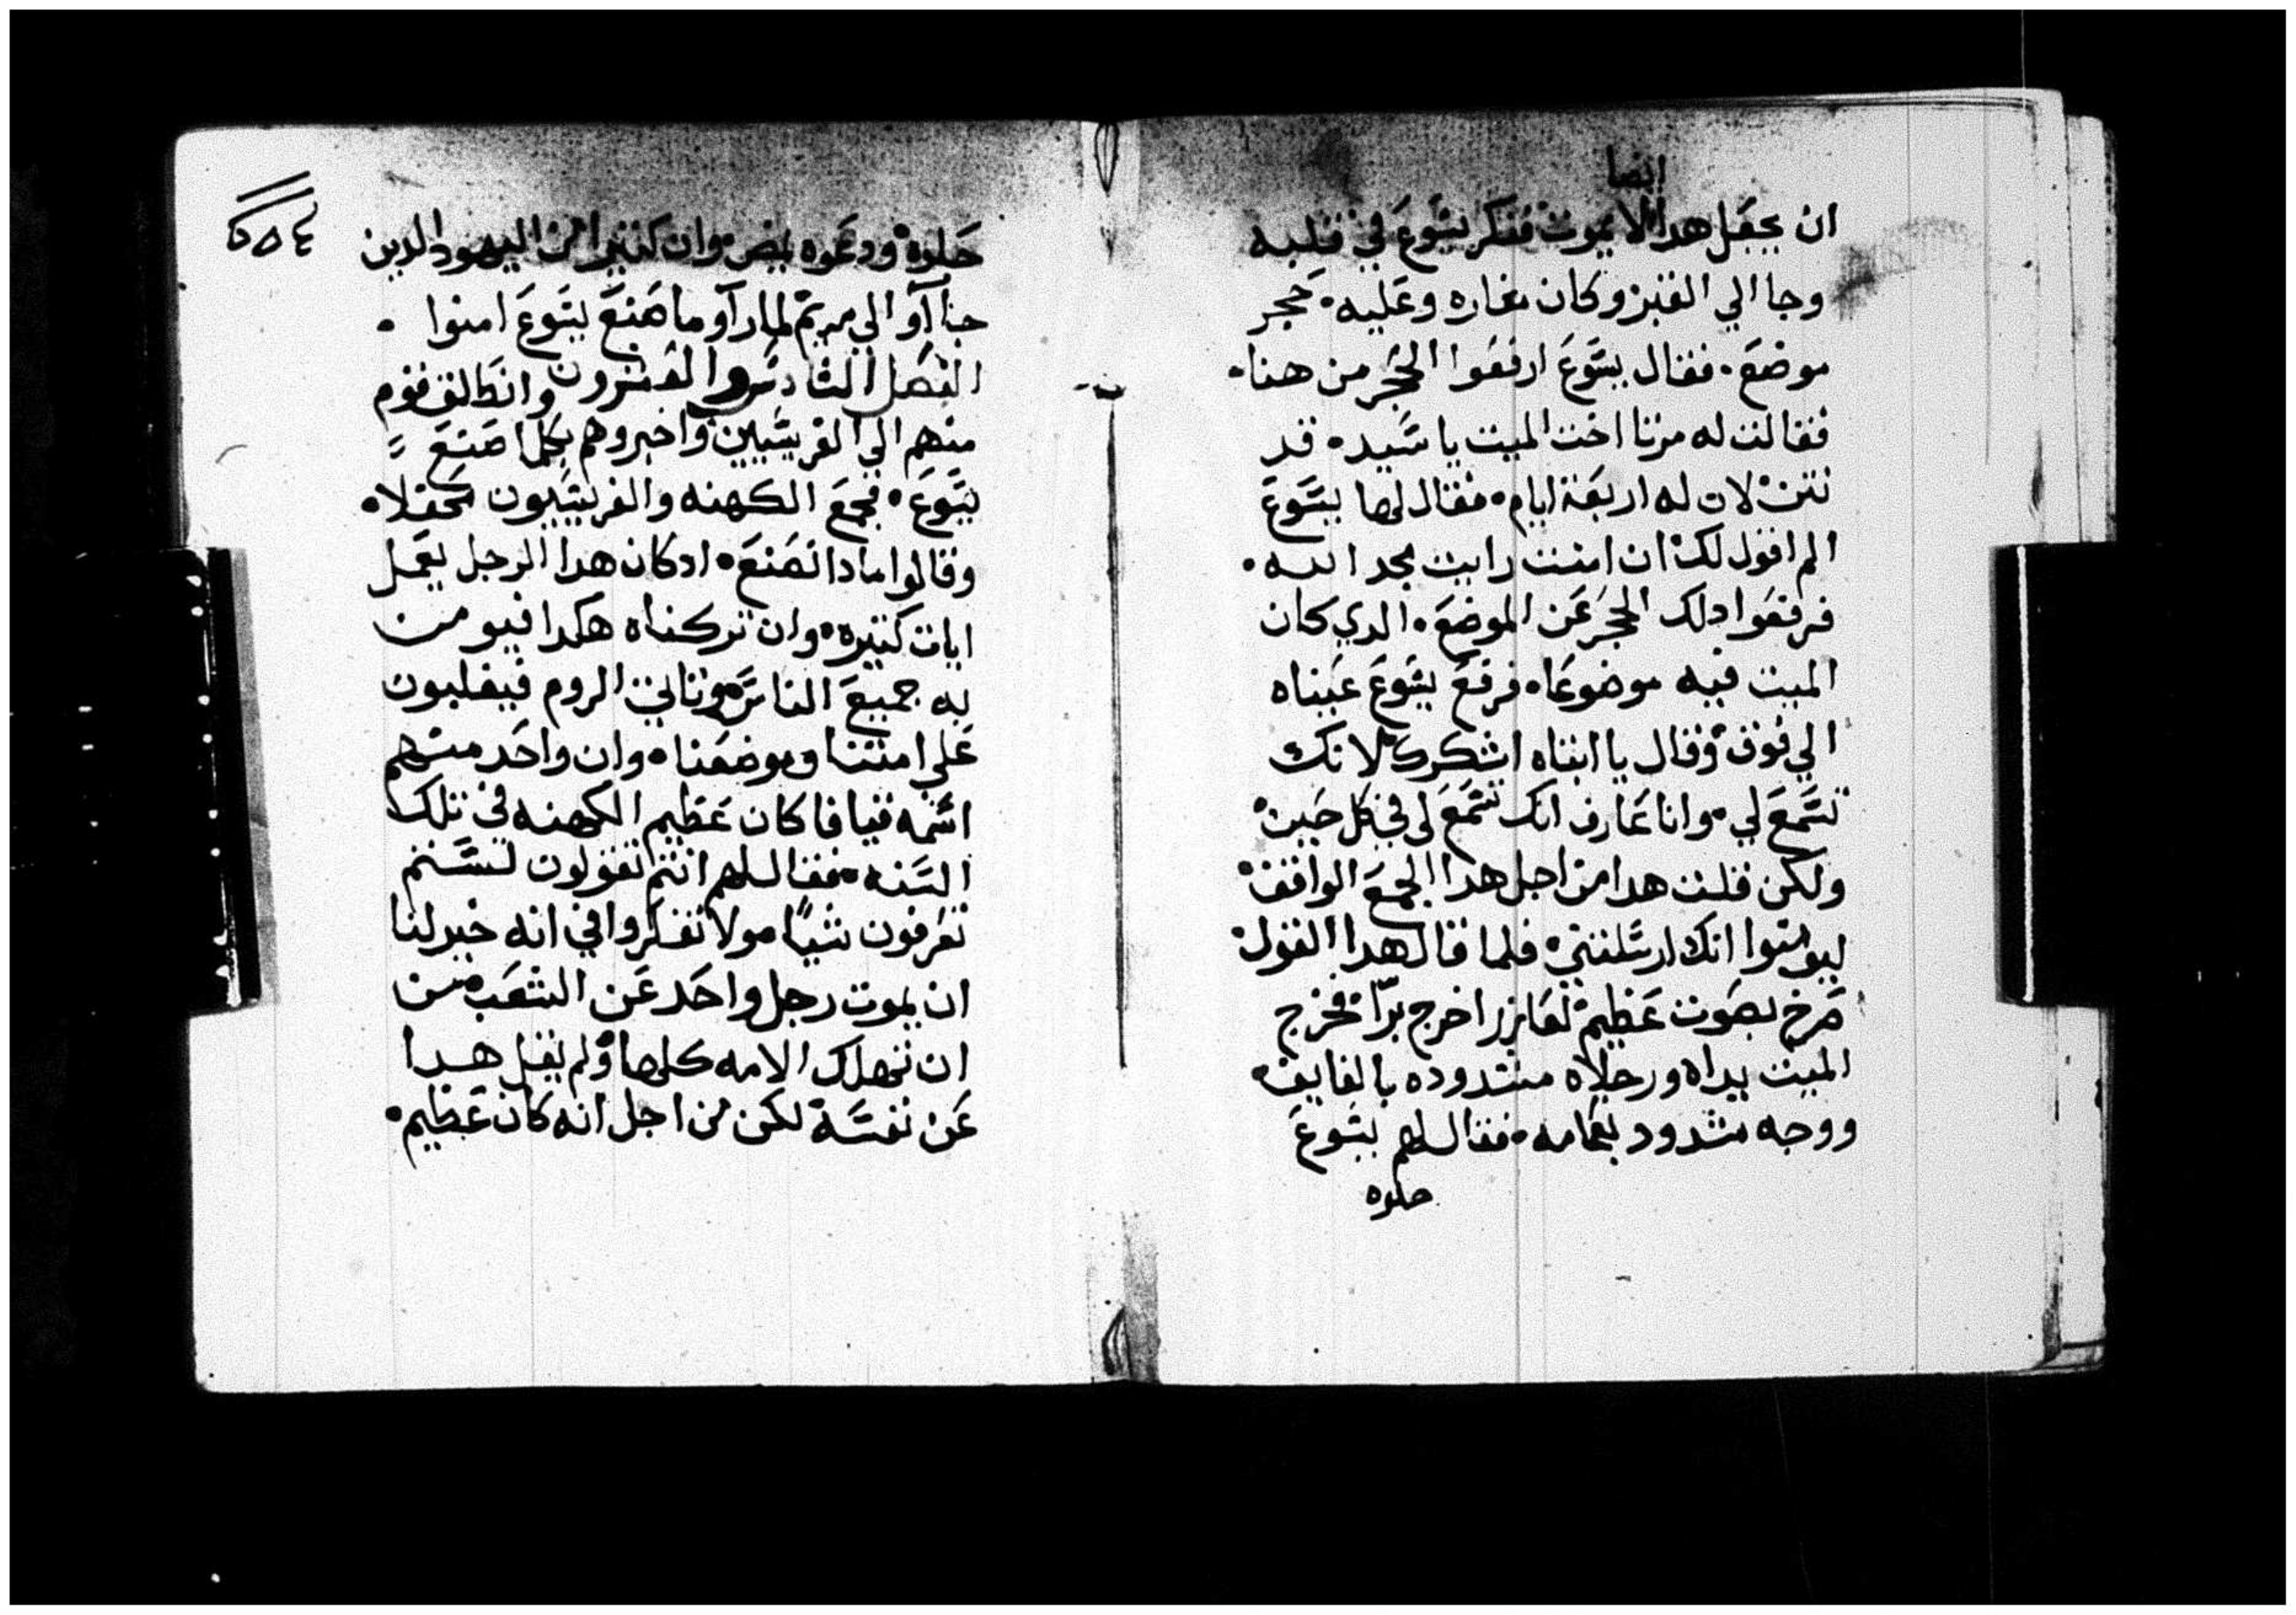 ايضا
ان يجعل هدا لا يموت ففكر يسوع في قلبه
وجا الي القبر وكان مغاره وعليه حجر
موضع • فقال يسوع ارفعوا الحجر من هنا •
فقالت له مرتا اخت الميت يا سيده قد
نتن لان له اربعة ايام • فقال لها يسوع
الم اقول لك ان امنت رايت مجد الله •
فرفعوا دلك الحجر عن الموضع • الدي كان
الميت فيه موضوعا • فرفع يسوع عيناه
الي فوق وقال يا ابتاه اشكرك لانك
تسمع لي • وانا عارف انك تسمع لي في كل حين
ولكن قلت هدا من اجل هدا الجمع الواقف
ليومنوا انك ارسلتني • فلما قال هدا القول
صرخ بصوت عظيم لعازر اخرج برّا • فخرج
الميت يداه ورجلاه مشدوده بالفايف •
ووجه مشدود بعمامه • فقال لهم يسوع
حلوه
٢٥٤
حلوه ودعوه يمض • وان كتيرا من اليهود الدين
جاآو الي مريم لما رآو ما صنع يسوع امنوا •
الفصل السادس والعشرون وانطلق قوم
منهم الي الفريسيين واخبروهم بكلما صنع
يسوع • فجمع الكهنه والفريسيون محفلا •
وقالوا مادا نصنع • ادكان هدا الرجل يعمل
ايات كتيره • وان تركناه هكدا فيومن
به جميع الناس وتاتي الروم فيغلبون
علي امتنا وموضعنا • وان واحد منهم
اسمه قيافا كان عظيم الكهنه في تلك
السنه • فقال لهم انتم تقولون لستم
تعرفون شياً • ولا تفكروا في انه خير لنا
ان يموت رجل واحد عن الشعب • من
ان تهلك الامه كلها ولم يقل هدا
عن نفسه لكن من اجل انه كان عظيم •